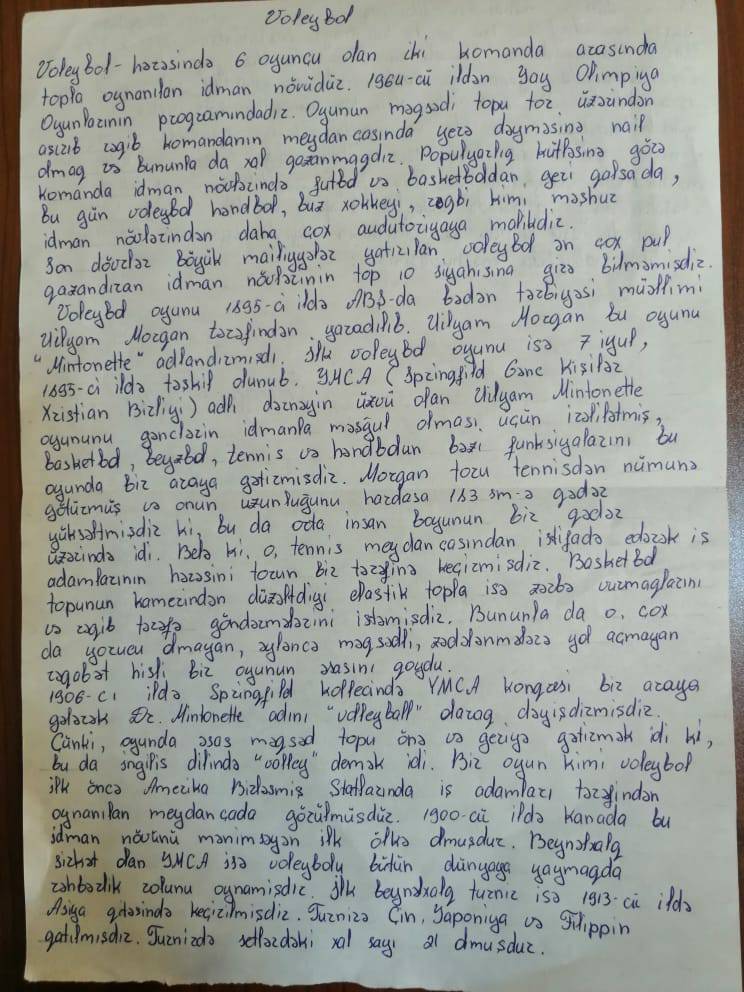 Voleybol
Voleybol - hərəsində 6 oyunçu olan iki komanda arasında
topla oynanılan idman növüdür. 1964-cü ildən Yay Olimpiya
Oyunlarının programındadır. Oyunun məqsədi topu tor üzərindən
aşırıb rəqib komandanın meydançasında yerə dəyməsinə nail
olmaq və bununla da xal qazanmaqdır. Populyarlıq kütləsinə görə
komanda idman növlərində futbol və basketboldan geri qalsa da,
bu gün voleybol həndbol, buz xokkeyi, reqbi kimi məşhur
idman növlərindən daha çox audutoriyaya malikdir.
Son dövrlər böyük mailiyyələr yatırılan voleybol ən çox pul
qazandıran idman növlərinin top 10 siyahısına girə bilməmişdir.
Voleybol oyunu 1895-ci ildə ABŞ-da bədən tərbiyəsi müəllimi
Uilyam Morgan tərəfindən yaradılıb. Uilyam Morgan bu oyunu
"Mintonette" adlandırmışdı. İlk voleybol oyunu isə 7 iyul,
1895-ci ildə təşkil olunub. YMCA (Springfild Gənc Kişilər
Xristian Birliyi) adlı dərnəyin üzvü olan Uilyam Mintonette
oyununu gənclərin idmanla məşğul olması üçün irəlilətmiş,
basketbol, beyzbol, tennis və həndbolun bəzi funksiyalarını bu
oyunda bir araya gətirmişdir. Morgan toru tennisdən nümunə
götürmüş və onun uzunluğunu hardasa 183 sm-ə qədər
yüksəltmişdir ki, bu da orta insan boyunun bir qədər
üzərində idi. Belə ki, o, tennis meydançasından istifadə edərək iş
adamlarının hərəsini torun bir tərəfinə keçirmişdir. Basketbol
topunun kamerindən düzəltdiyi elastik topla isə zərbə vurmaqlarını
və rəqib tərəfə göndərmələrini istəmişdir. Bununla da o, çox
da yorucu olmayan, əyləncə məqsədli, zədələnmələrə yol açmayan
rəqabət hisli bir oyunun əsasını qoydu.
1906-cı ildə Springfild kollecində YMCA kongresi bir araya
gələrək Dr. Mintonette adını "volleyball" olaraq dəyişdirmişdir.
Çünki, oyunda əsas məqsəd topu önə və geriyə gətirmək idi ki,
bu da ingilis dilində "volley" demək idi. Bir oyun kimi voleybol
ilk öncə Amerika Birləşmiş Ştatlarında iş adamları tərəfindən
oynanılan meydançada görülmüşdür. 1900-cü ildə Kanada bu
idman növünü mənimsəyən ilk ölkə olmuşdur. Beynəlxalq
şirkət olan YMCA isə voleybolu bütün dünyaya yaymaqda
rəhbərlik rolunu oynamışdır. İlk beynəlxalq turnir isə 1913-cü ildə
Asiya qitəsində keçirilmişdir. Turnirə Çin, Yaponiya və Filippin
qatılmışdır. Turnirdə setlərdəki xal sayı 21 olmuşdur.